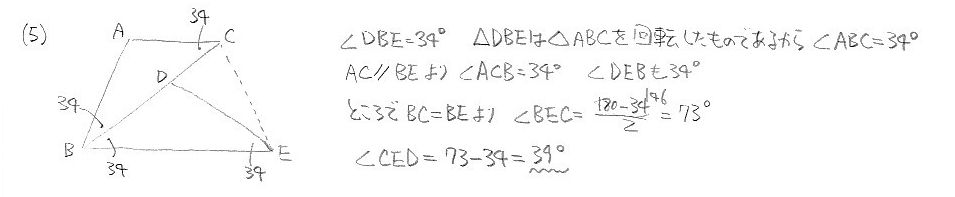 (5)
34
A
C
D
34
B
34
34
E
∠DBE=34° △DBEは△ABCを回転したものであるから ∠ABC=34°
AC//BEより ∠ACB=34° ∠DEBも34°
ところで BC=BEより ∠BEC= (180-34)/2 146 = 73°
∠CED = 73-34 = 39°